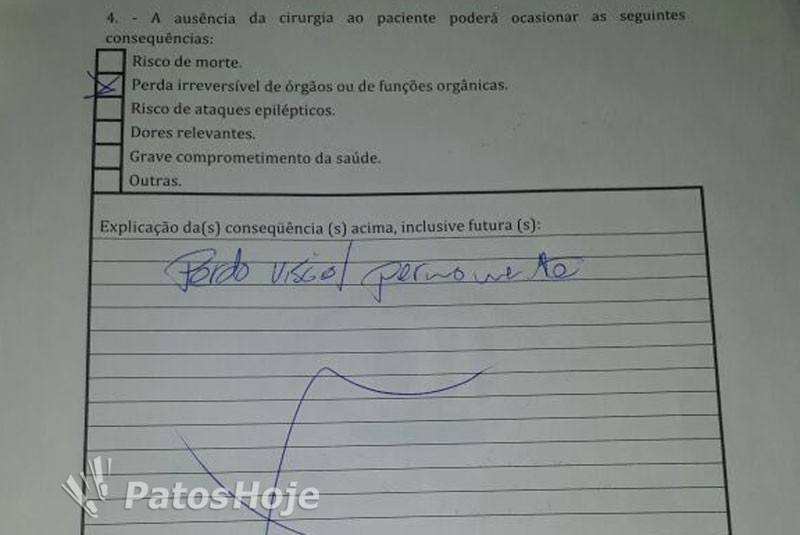 4. - A ausência da cirurgia ao paciente poderá ocasionar as seguintes
consequências:
Risco de morte.
Perda irreversível de órgãos ou de funções orgânicas.
Risco de ataques epilépticos.
Dores relevantes.
Grave comprometimento da saúde.
Outras.
Explicação da(s) conseqüência (s) acima, inclusive futura (s):
Perda visual permanente
PatosHoje